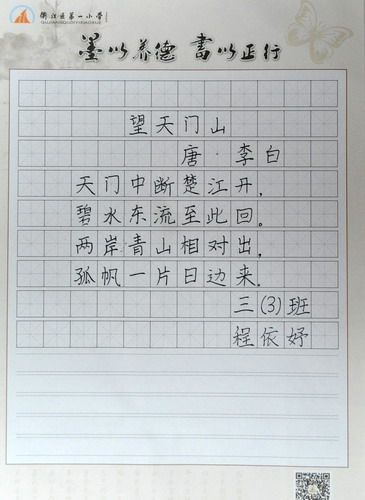 第一小学
墨以养德 書以正行
望天门山
唐·李白
天门中断楚江丹,
碧水东流至此回。
两岸青山相对出,
孤帆一片日边来.
三(3)班
程依妤